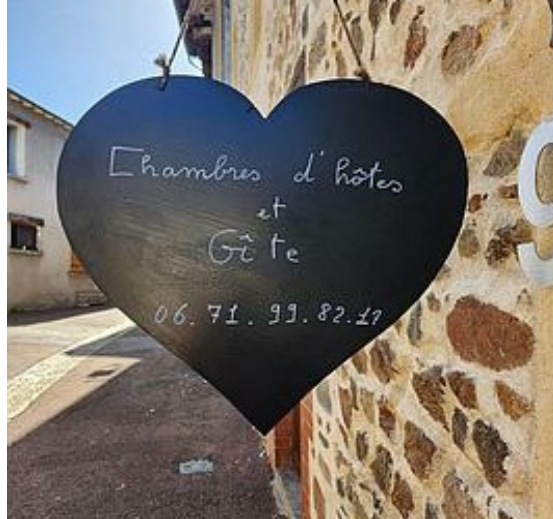 Chambres d'hôtes
et
Gîte
06.71.99.82.17